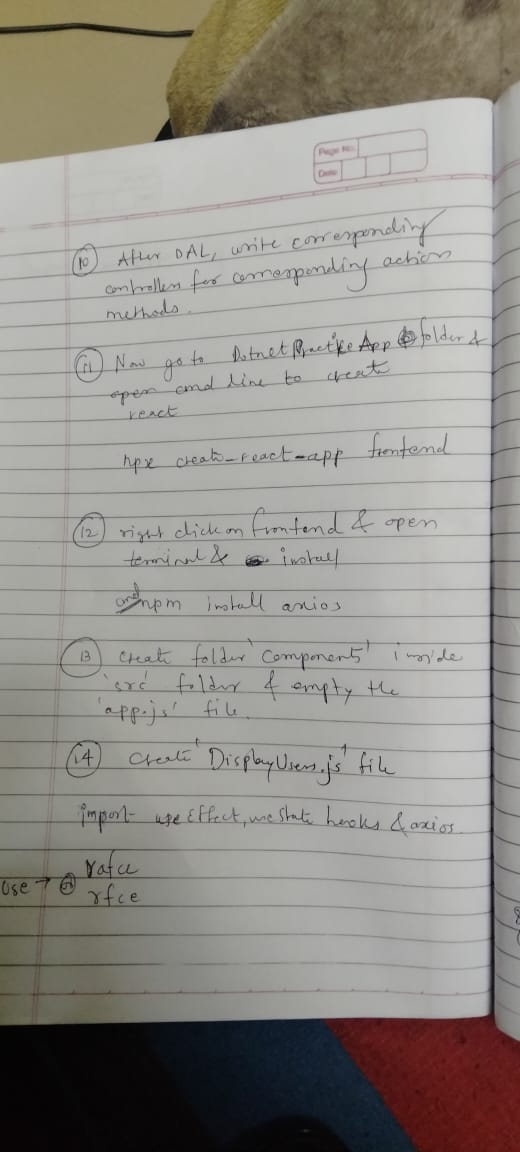 Page No.
Date
10 After DAL, write corresponding
controllers for corresponding action
methods.
11 Now go to Dotnet Practice App folder &
open cmd line to create
react
npx create-react-app frontend
12 right click on frontend & open
terminal & install
npm install axios
13 Create folder 'Components' inside
'src' folder & empty the
'app.js' file.
14 Create "DisplayUsers.js" file
import useEffect, useState hooks & axios.
rafce
Use → rfce